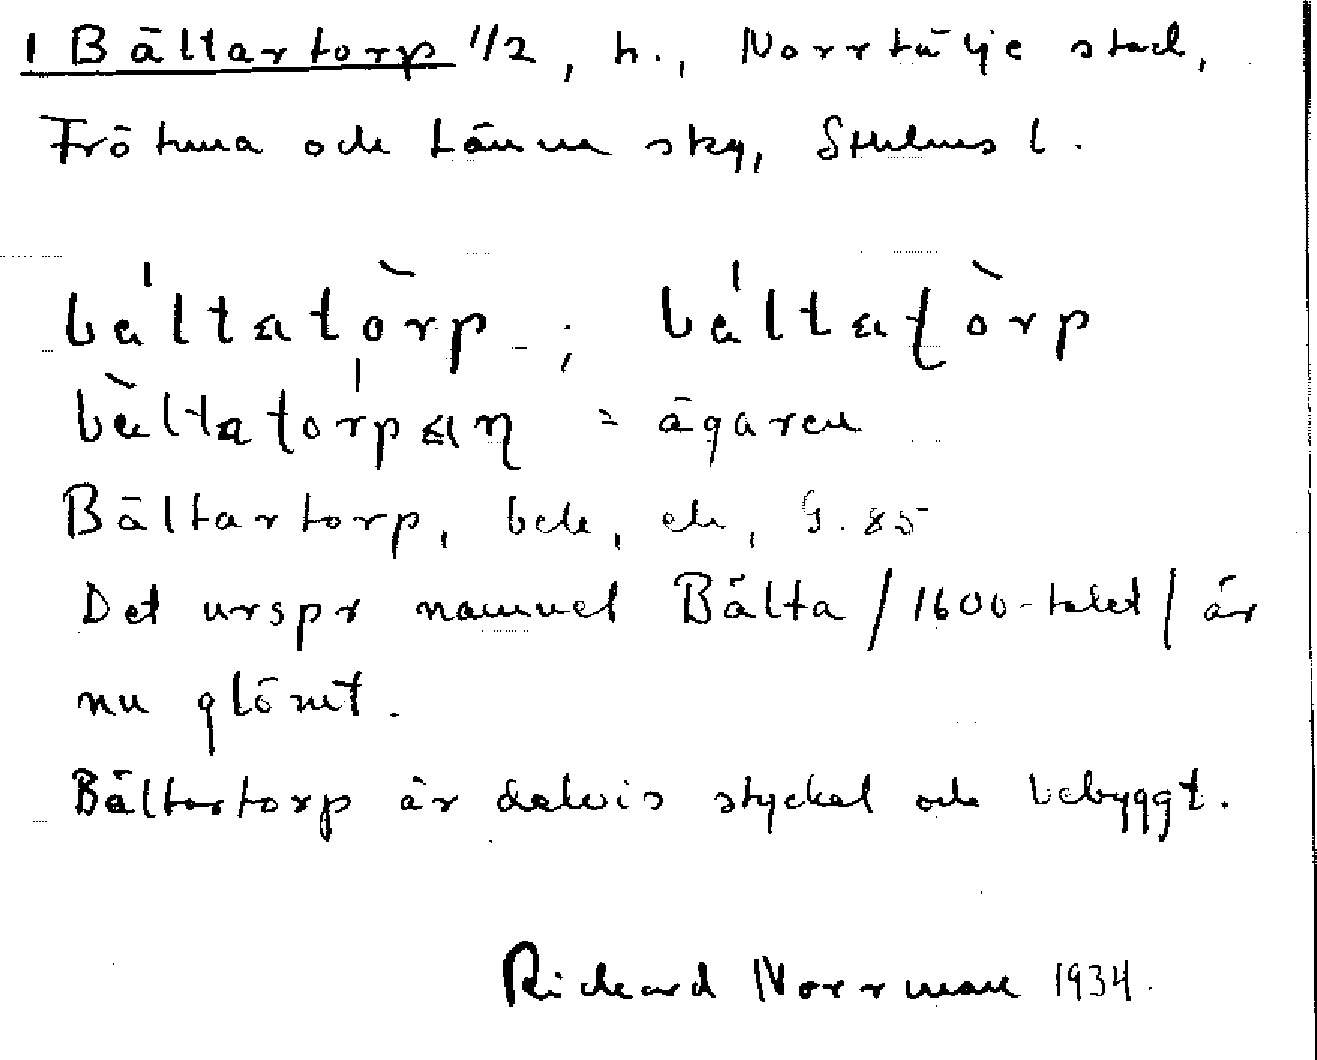 1 Bältartorp 1/2, h., Norrtälje stad,
Frötuna och Länna skg, Sthlms l.
bálttatòrp ; bálttatòrp
bàlttatórpan = ägaren
Bältartorp, bck, ek, G. 85
Det urspr namnet Bälta /1600-talet/ är
nu glömt.
Bältartorp är delvis styckat och bebyggt.
Richard Norrman 1934.